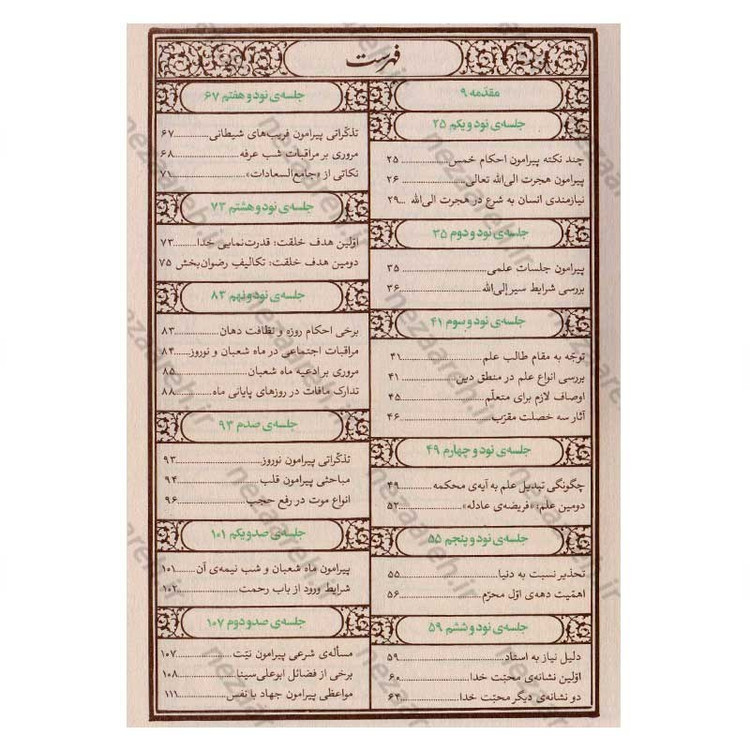 فهرست
مقدّمه ۹
جلسه‌ی نود و یکم ۲۵
چند نکته پیرامون احکام خمس ۲۵
پیرامون هجرت الی‌الله تعالی ۲۶
نیازمندی انسان به شرع در هجرت الی‌الله ۲۹
جلسه‌ی نود و دوم ۳۵
پیرامون جلسات علمی ۳۵
بررسی شرایط سیر إلی‌الله ۳۶
جلسه‌ی نود و سوم ۴۱
توجّه به مقام طالب علم ۴۱
بررسی انواع علم در منطق دین ۴۱
اوصاف لازم برای متعلّم ۴۵
آثار سه خصلت مقرّب ۴۶
جلسه‌ی نود و چهارم ۴۹
چگونگی تبدیل علم به آیه‌ی محکمه ۴۹
دومین علم: «فریضه‌ی عادله» ۵۲
جلسه‌ی نود و پنجم ۵۵
تحذیر نسبت به دنیا ۵۵
اهمّیّت دهه‌ی اوّل محرّم ۵۶
جلسه‌ی نود و ششم ۵۹
دلیل نیاز به استاد ۵۹
اوّلین نشانه‌ی محبّت خدا ۶۰
دو نشانه‌ی دیگر محبّت خدا ۶۴
جلسه‌ی نود و هفتم ۶۷
تذکّراتی پیرامون فریب‌های شیطانی ۶۷
مروری بر مراقبات شب عرفه ۶۸
نکاتی از «جامع‌السعادات» ۷۱
جلسه‌ی نود و هشتم ۷۳
اوّلین هدف خلقت: قدرت‌نمایی خدا ۷۳
دومین هدف خلقت: تکالیف رضوان‌بخش ۷۵
جلسه‌ی نود و نهم ۸۳
برخی احکام روزه و نظافت دهان ۸۳
مراقبات اجتماعی در ماه شعبان و نوروز ۸۴
مروری بر ادعیه ماه شعبان ۸۵
تدارک مافات در روزهای پایانی ماه ۸۸
جلسه‌ی صدم ۹۳
تذکّراتی پیرامون نوروز ۹۳
مباحثی پیرامون قلب ۹۴
انواع موت در رفع حجب ۹۶
جلسه‌ی صد و یکم ۱۰۱
پیرامون ماه شعبان و شب نیمه‌ی آن ۱۰۱
شرایط ورود از باب رحمت ۱۰۲
جلسه‌ی صد و دوم ۱۰۷
مسأله‌ی شرعی پیرامون نیّت ۱۰۷
برخی از فضائل ابوعلی‌سینا ۱۰۸
مواعظی پیرامون جهاد با نفس ۱۱۱
nezaareh.ir